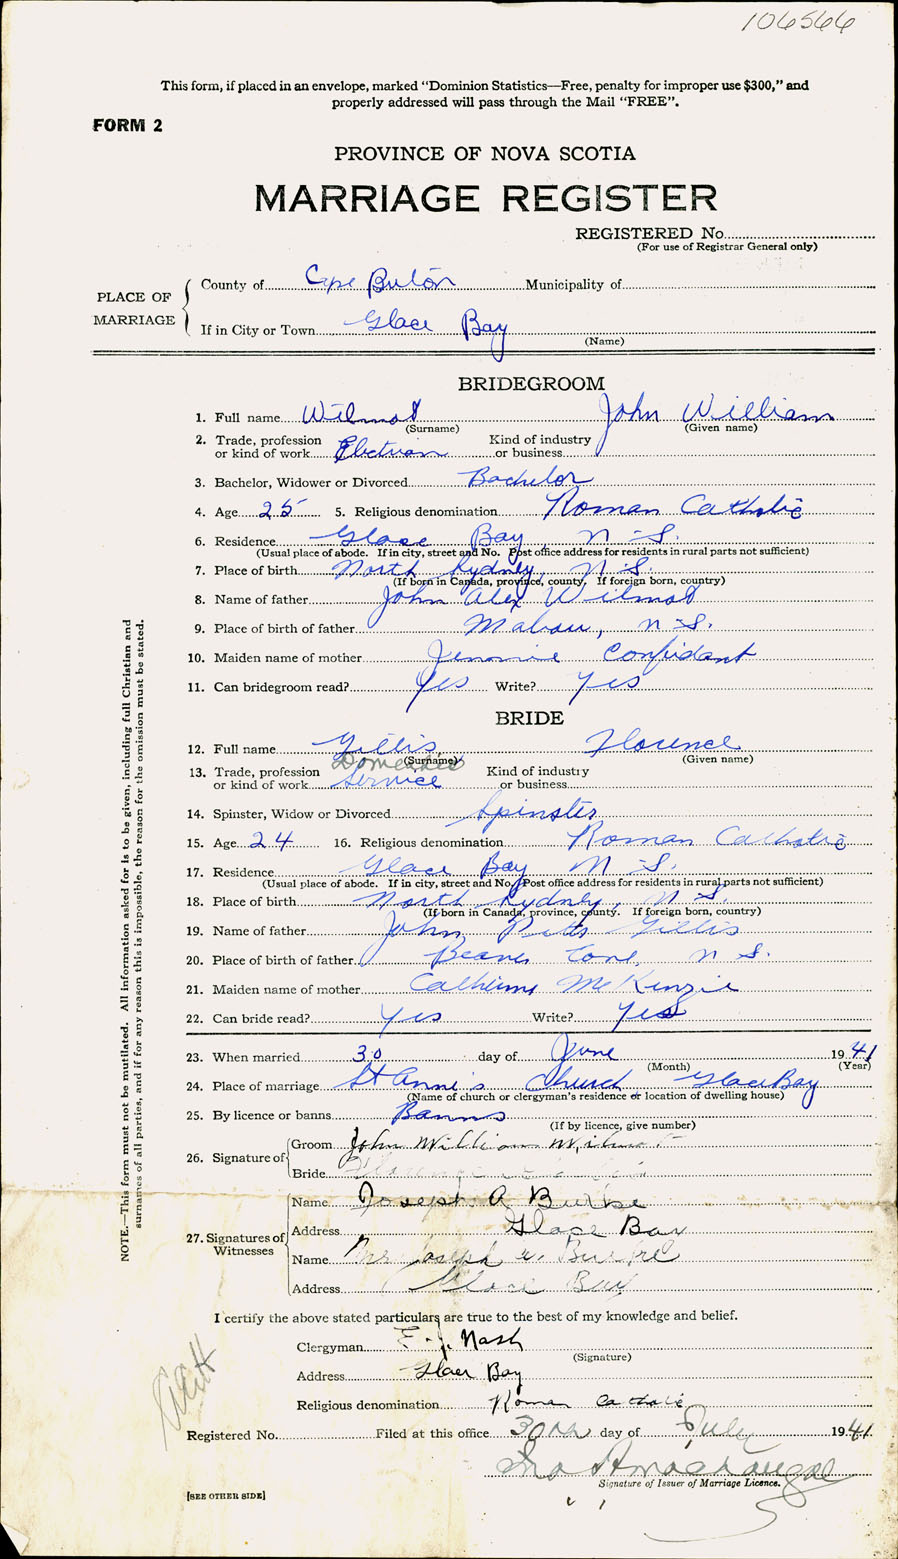 106566
This form, if placed in an envelope, marked "Dominion Statistics—Free, penalty for improper use $300," and
properly addressed will pass through the Mail "FREE".
FORM 2
PROVINCE OF NOVA SCOTIA
MARRIAGE REGISTER
REGISTERED No.
(For use of Registrar General only)
PLACE OF MARRIAGE
County of Cape Breton Municipality of
If in City or Town Glace Bay
(Name)
BRIDEGROOM
1. Full name Wilmot John William
(Surname) (Given name)
2. Trade, profession Kind of industry
or kind of work Electrician or business
3. Bachelor, Widower or Divorced Bachelor
4. Age 25 5. Religious denomination Roman Catholic
6. Residence Glace Bay, N.S.
(Usual place of abode. If in city, street and No. Post office address for residents in rural parts not sufficient)
7. Place of birth North Sydney, N.S.
(If born in Canada, province, county. If foreign born, country)
8. Name of father John Alex Wilmot
9. Place of birth of father Mabou, N.S.
10. Maiden name of mother Confidant
11. Can bridegroom read? Yes Write? Yes
BRIDE
12. Full name Gillis Florence
(Surname) (Given name)
Domestic
13. Trade, profession Kind of industry
or kind of work Service or business
14. Spinster, Widow or Divorced Spinster
15. Age 24 16. Religious denomination Roman Catholic
17. Residence Glace Bay N.S.
(Usual place of abode. If in city, street and No. Post office address for residents in rural parts not sufficient)
18. Place of birth North Sydney, N.S.
(If born in Canada, province, county. If foreign born, country)
19. Name of father John Gillis
20. Place of birth of father Beaver Cove, N.S.
21. Maiden name of mother Catherine McKenzie
22. Can bride read? Yes Write? Yes
23. When married 30 day of June 1941
(Month) (Year)
24. Place of marriage St Anne's Church Glace Bay
(Name of church or clergyman's residence or location of dwelling house)
25. By licence or banns Banns
(If by licence, give number)
26. Signature of
Groom John William Wilmot
Bride Florence
27. Signatures of Witnesses
Name Joseph A Burke
Address Glace Bay
Name Mrs Joseph Burke
Address Glace Bay
I certify the above stated particulars are true to the best of my knowledge and belief.
Clergyman E. J. Nash
(Signature)
Address Glace Bay
Religious denomination Roman Catholic
Registered No. Filed at this office 30th day of July 1941
Signature of Issuer of Marriage Licence.
[SEE OTHER SIDE]
NOTE.—This form must not be mutilated. All information asked for is to be given, including full Christian and
surnames of all parties, and if for any reason this is impossible, the reason for the omission must be stated.